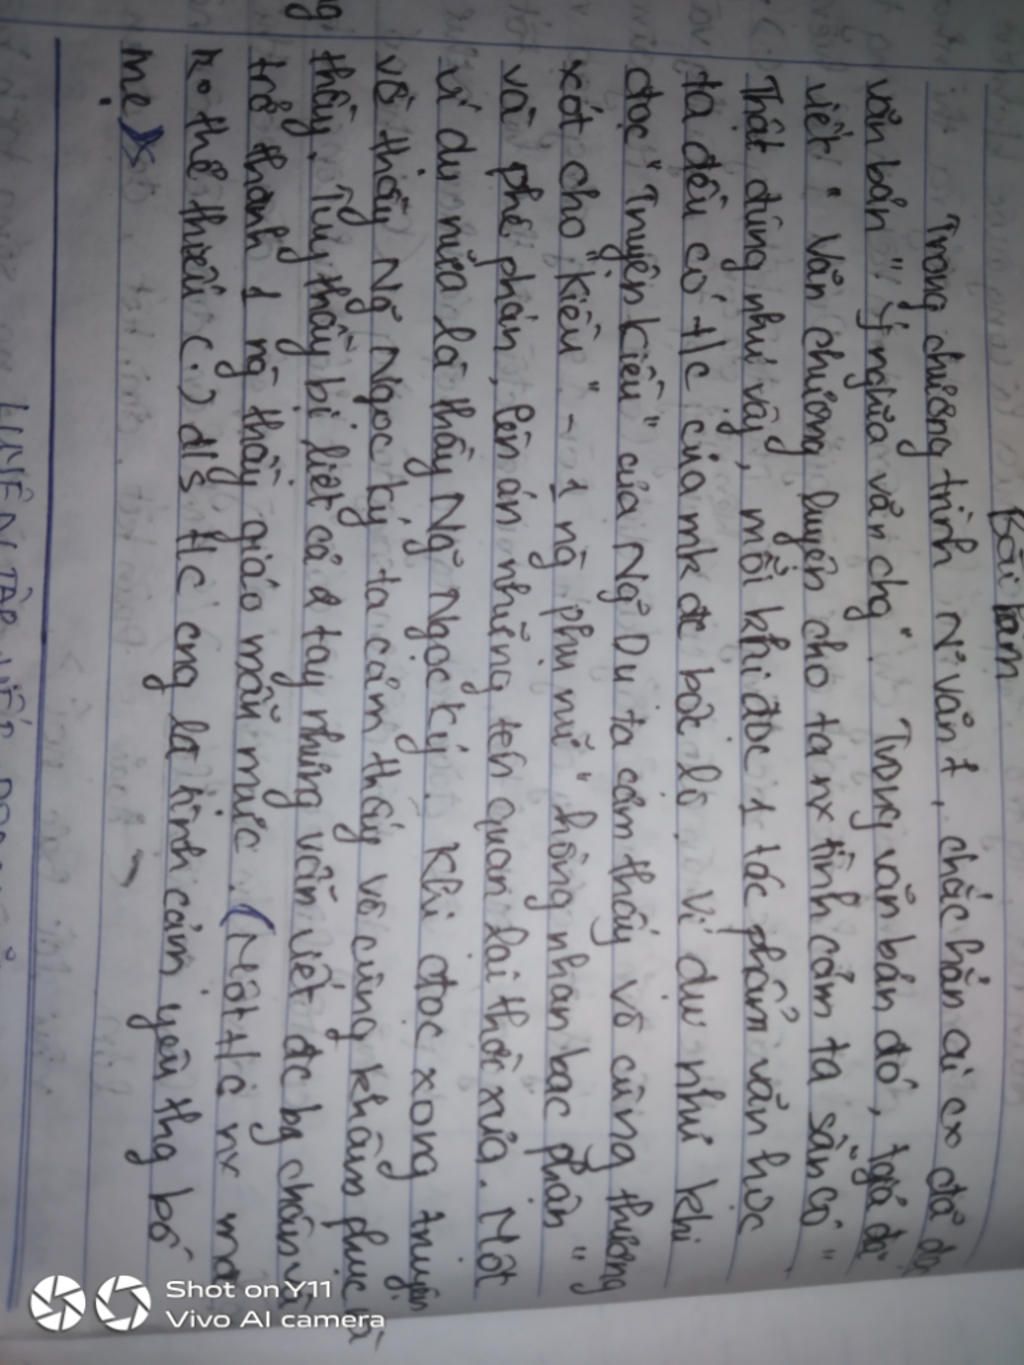 Bài làm
Trong chương trình N.văn 7, chắc hẳn ai cx đã
văn bản "Ý nghĩa văn chg". Trong văn bản đó, tgiả đã
viết "Văn chương luyện cho ta nx tình cảm ta sẵn có"
Thật đúng như vậy, mỗi khi đọc 1 tác phẩm văn học
ta đều có t/c của mk đc bộc lộ. Ví dụ như khi
đọc "Truyện Kiều" của Ng~ Du ta cảm thấy vô cùng thương
xót cho "Kiều" - 1 ng phụ nữ "hồng nhan bạc phận"
và phê phán, lên án những tên quan lại thời xưa. Một
ví dụ nữa là thầy Ng~ Ngọc Ký. Khi đọc xong truyện
về thầy Ng~ Ngọc Ký ta cảm thấy vô cùng khâm phục
thầy. Tuy thầy bị liệt cả 2 tay nhưng vẫn viết đc bg chân và
trở thành 1 ng thầy giáo mẫu mực. (Một t/c nx mà
ko thể thiếu (.) đ/s t/c cng là tình cảm yêu thg bố
mẹ)
LUYỆN TẬP VIẾT
Shot on Y11
Vivo AI camera